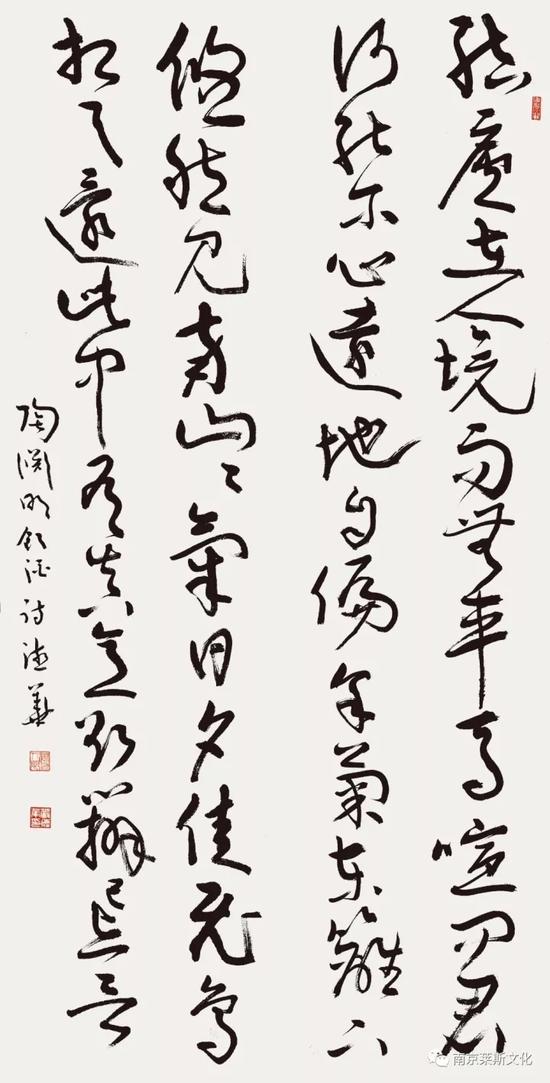 結廬在人境而無車馬喧問君
何能尔心遠地自偏采菊東籬下
悠然見南山〻氣日夕佳飛鳥
相与還此中有真意欲辯已忘言
陶淵明飲酒詩 華
南京莱斯文化